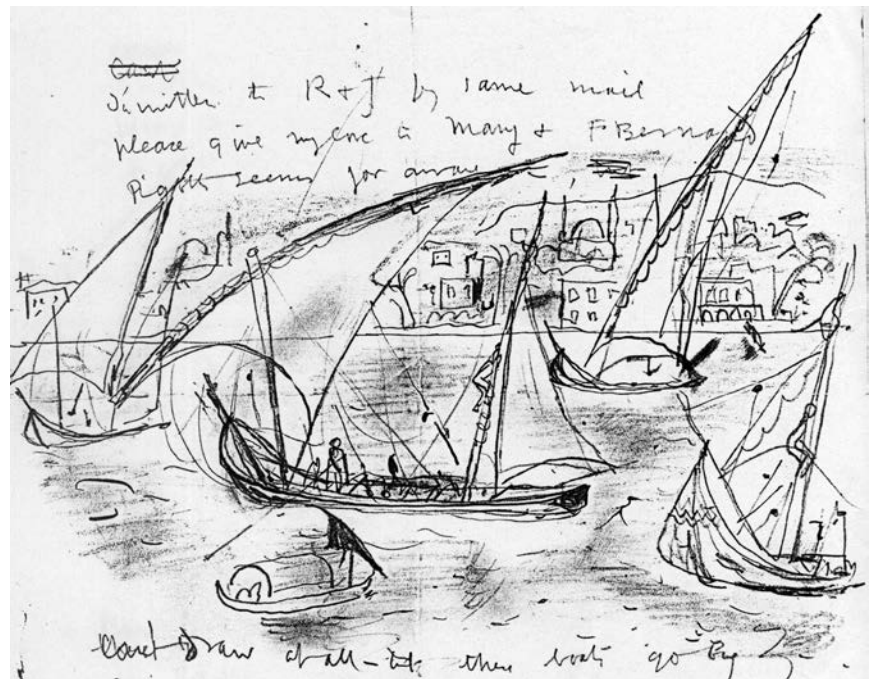 to R + J by same mail
please give my love to Mary & F Bernard
seems far away
draw at all – but these boats go by